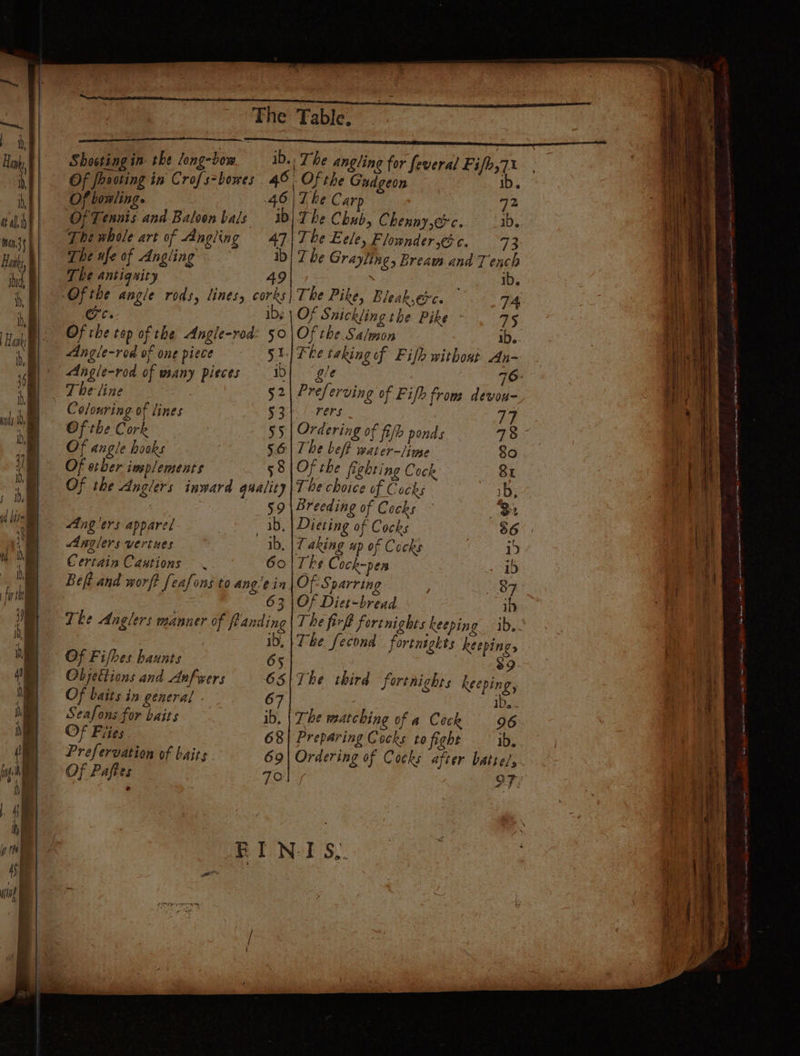 The Table.
Shooting in the long-bow. ib.
Of ſhooting in Croſs-bowes 46
Of bowling. 46
Of Tennis and Baloon bals ib
The whole art of Angling 47
The uſe of Angling ib
The antiquity 49
Of the angle rods, lines, corks
&c. ib.
Of the top of the Angle-rod. 50
Angle-rod of one piece 51.
Angle-rod of many pieces ib
The line 52
Colouring of lines 53
Of the Cork 55
Of angle hooks 56
Of other implements 58
Of the Anglers inward quality
59
Anglers apparel ib.
Anglers vertues ib.
Certain Cautions 60
Beſt and worſt ſeaſons to angle in
63
The Anglers manner of ſtanding
ib.
Of Fiſhes haunts 65
Objections and Anſwers 65
Of baits in general 67
Seaſons for baits ib.
Of Flies 68
Preſervation of baits 69
Of Paſtes 70
The angling for ſeveral Fiſh, 71
Of the Gudgeon ib.
The Carp 72
The Chub, Chenny, &c. ib.
The Eele, Flounder, &c. 73
The Grayling, Bream and Tench
ib.
The Pike, Bleak, &c. 74
Of Snickling the Pike 75
Of the Salmon ib.
The taking of Fiſh without An-
gle 76
Preſerving of Fiſh from devou-
rers 77
Ordering of fiſh ponds 78
The beſt water-lime 80
Of the fighting Cock 81
The choice of Cocks ib.
Breeding of Cocks
Dieting of Cocks 86
Taking up of Cocks ib
The Cock-pen ib
Of Sparring 87
Of Diet-bread ib
The firſt fortnights keeping ib.
The ſecond fortnights keeping,
89
The third fortnights keeping,
ib.
The matching of a Cock 96
Preparing Cocks to fight ib.
Ordering of Cocks after battel,
97
FINIS.